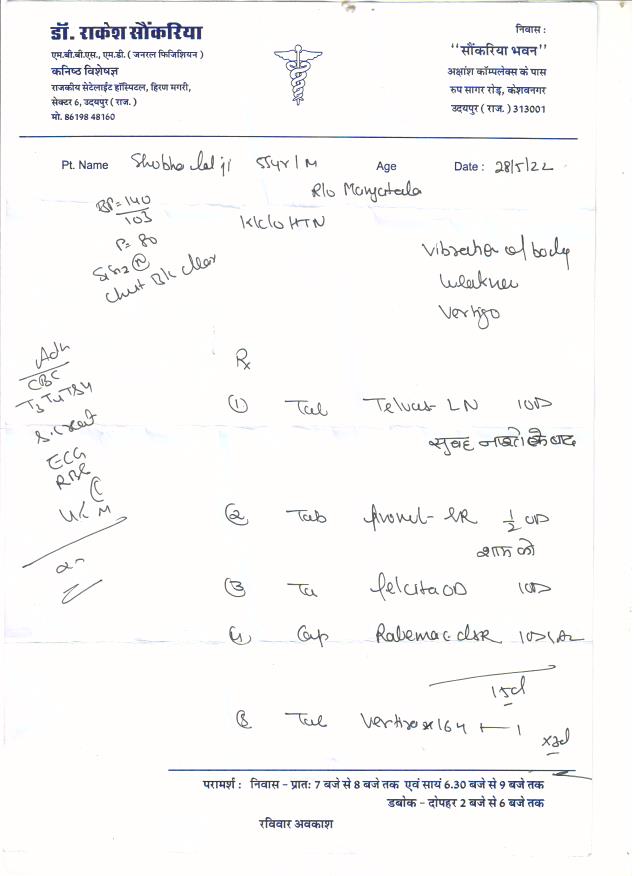 डॉ. राकेश सौंकरिया
एम.बी.बी.एस., एम.डी. ( जनरल फिजिशियन )
कनिष्ठ विशेषज्ञ
राजकीय सेटेलाईट हॉस्पिटल, हिरण मगरी,
सेक्टर 6, उदयपुर ( राज. )
मो. 86198 48160
निवास :
"सौंकरिया भवन"
अक्षांश कॉम्पलेक्स के पास
रुप सागर रोड़, केशवनगर
उदयपुर ( राज. ) 313001
Pt. Name Shobha lal ji 55yr/M Age Date : 28/5/22
R/o
BP = 140
103
P = 80
Chest B/L clear
K/C/O HTN
Vibration of body
Weakness
Vertigo
Adv
CBC
T3 T4 TSH
S. Creat
ECG
RBS
Rx
① Tab Telvas LN 1OD
सुबह नाश्ते के बाद
② Tab SR ½ OD
शाम को
③ Ta Felicita OD 1OD
④ Cap Rabemac DSR 1OD
15d
⑤ Tab
परामर्श : निवास - प्रात: 7 बजे से 8 बजे तक एवं सायं 6.30 बजे से 9 बजे तक
डबोक - दोपहर 2 बजे से 6 बजे तक
रविवार अवकाश